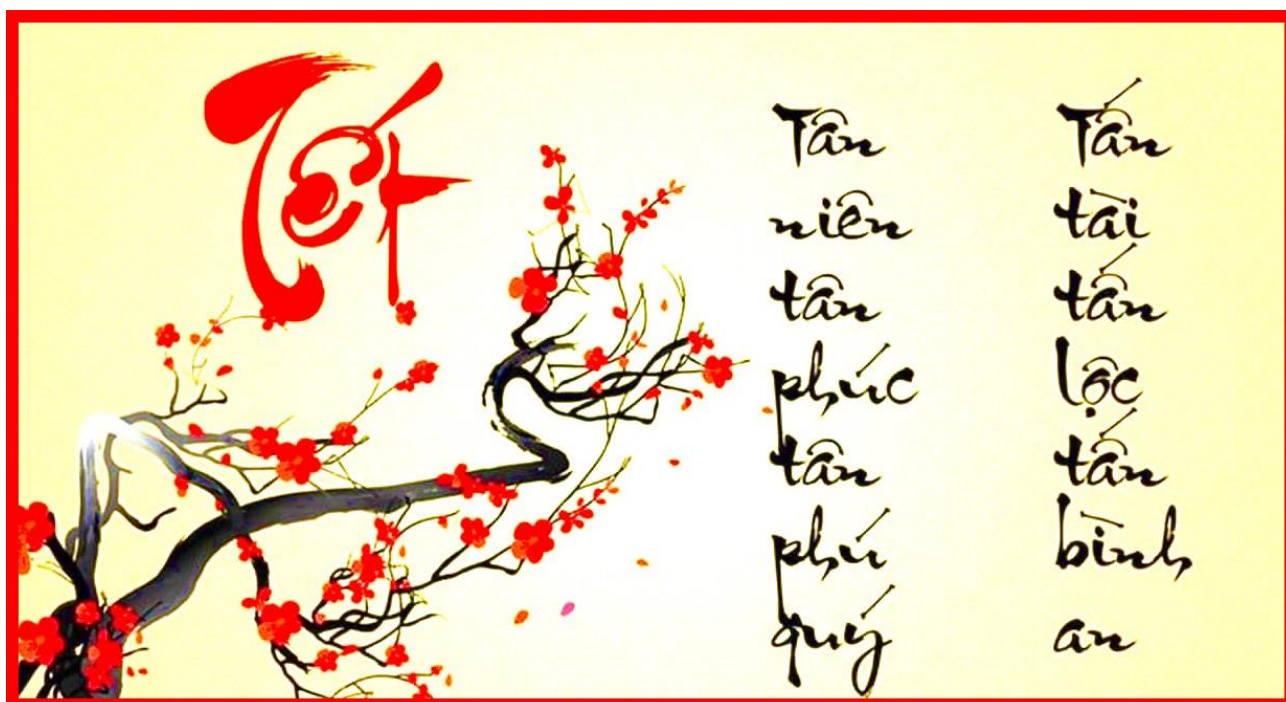 Tết
Tân
niên
tân
phúc
tân
phú
quý
Tấn
tài
tấn
lộc
tấn
bình
an